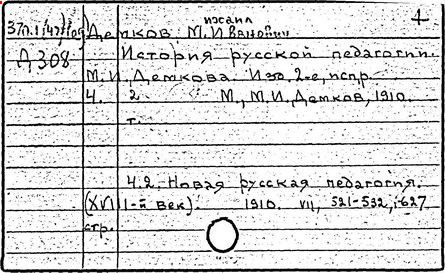 ихаил 4
37П.1(47)(09) Демков М.Иванович
Д 308 История русской педагогии
М.И. Демкова Изд. 2-е, испр.
Ч. 2 М., М.И. Демков, 1910.
т.
Ч.2. Новая русская педагогия.
(XVIII-й век). 1910. VII, 521-532, 627
стр.